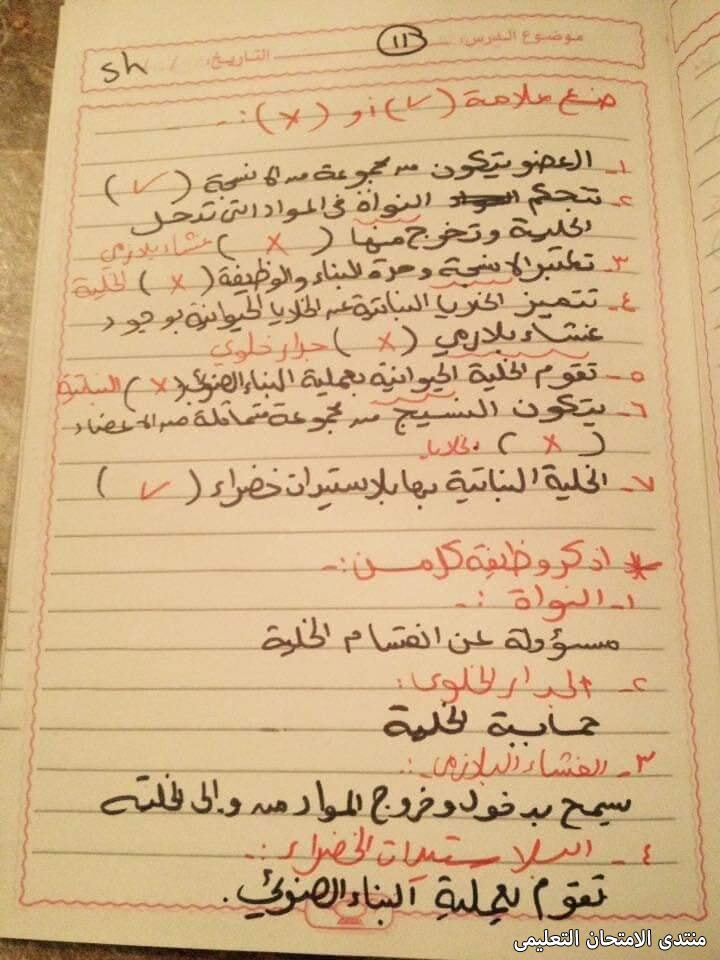 موضوع الدرس: (١١)
التاريخ: / /
Sh
ضع علامة (✓) أو (x) :-
١- العضو يتكون من مجموعة من الانسجة (✓)
٢- تتحكم النواة فى المواد التى تدخل
الخلية وتخرج منها (x) غشاء بلازمى
٣- تعتبر الانسجة وحدة البناء والوظيفة (x) الخلية
٤- تتميز الخلايا النباتية عن الخلايا الحيوانية بوجود
غشاء بلازمي (x) جدار خلوي
٥- تقوم الخلية الحيوانية بعملية البناء الضوئى (x) النباتية
٦- يتكون النسيج من مجموعة متماثلة من الاعضاء
(x) خلايا
٧- الخلية النباتية بها بلاستيدات خضراء (✓)
* اذكر وظيفة كل من :-
١- النواة :-
مسؤولة عن انقسام الخلية
٢- الجدار الخلوى:
حماية الخلية
٣- الغشاء البلازمى:
يسمح بدخول وخروج المواد من والى الخلية
٤- البلاستيدات الخضراء :-
تقوم بعملية البناء الضوئى.
منتدى الامتحان التعليمى